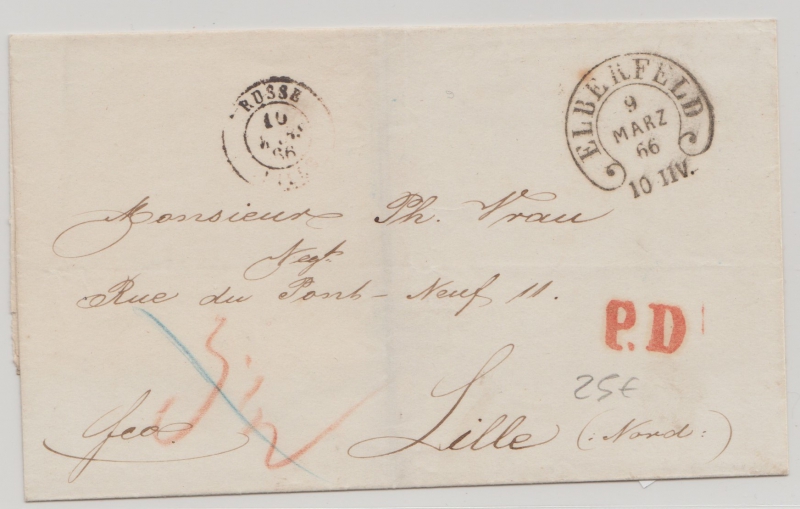 ELBERFELD
9
MARZ
66
10 IIV.
RUSSE
10
66
Monsieur Ph. Vrau
Negt.
Rue du Pont-Neuf 11.
P.D
25€
fco. Lille (:Nord:)